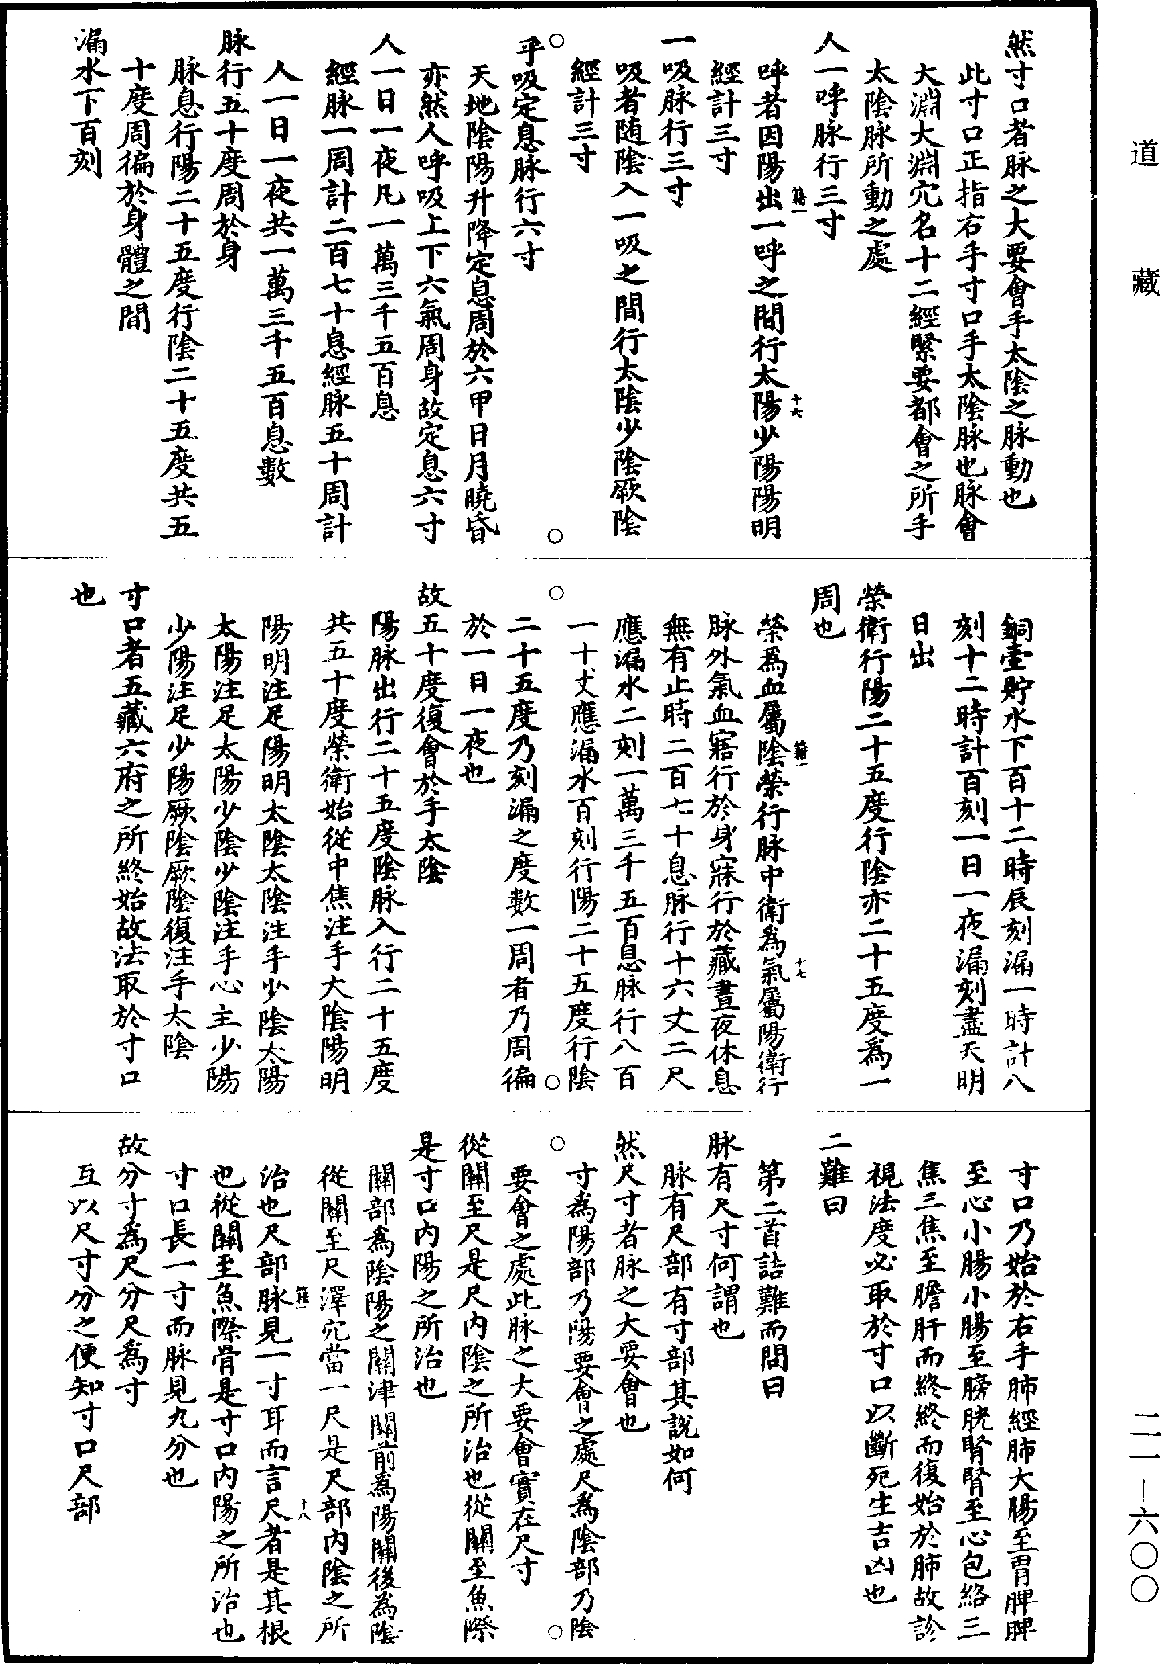 道藏
然寸口者脉之大要會手太陰之脉動也
此寸口正指右手寸口手太陰脉也脉會
大淵大淵穴名十二經緊要都會之所手
太陰脉所動之處
人一呼脉行三寸
呼者因陽出一呼之間行太陽少陽陽明
經計三寸
一吸脉行三寸
吸者随陰入一吸之間行太陰少陰厥陰
經計三寸
乎吸定息脉行六寸
天地陰陽升降定息周於六甲日月曉昏
亦然人呼吸上下六氣周身故定息六寸
人一日一夜凡一萬三千五百息
經脉一周計二百七十息經脉五十周計
人一日一夜共一萬三千五百息數
脉行五十度周於身
脉息行陽二十五度行陰二十五度共五
十度周徧於身體之間
漏水下百刻
銅壷貯水下百十二時辰刻漏一時計八
刻十二時計百刻一日一夜漏刻盡天明
日出
榮衛行陽二十五度行陰亦二十五度為一
周也
榮為血屬陰榮行脉中衛為氣屬陽衛行
脉外氣血寤行於身寐行於藏晝夜休息
無有止時二百七十息脉行十六丈二尺
應漏水二刻一萬三千五百息脉行八百
一十丈應漏水百刻行陽二十五度行陰
二十五度乃刻漏之度數一周者乃周徧
於一日一夜也
故五十度復會於手太陰
陽脉出行二十五度陰脉入行二十五度
共五十度榮衛始從中焦注手大陰陽明
陽明注足陽明太陰太陰注手少陰太陽
太陽注足太陽少陰少陰注手心主少陽
少陽注足少陽厥陰厥陰復注手太陰
寸口者五藏六府之所終始故法取於寸口
也
寸口乃始於右手肺經肺大腸至胃脾脾
至心小腸小腸至膀胱腎腎至心包絡三
焦三焦至膽肝而終終而復始於肺故診
視法度必取於寸口以斷死生吉凶也
二難曰
第二首詰難而問曰
脉有尺寸何謂也
脉有尺部有寸部其說如何
然尺寸者脉之大要會也
寸為陽部乃陽要會之處尺為陰部乃陰
要會之處此脉之大要會實在尺寸
從關至尺是尺内陰之所治也從關至魚際
是寸口内陽之所治也
關部為陰陽之關津關前為陽關後為陰
從關至尺澤穴當一尺是尺部内陰之所
治也尺部脉見一寸耳而言尺者是其根
也從關至魚際骨是寸口内陽之所治也
寸口長一寸而脉見九分也
故分寸為尺分尺為寸
互以尺寸分之便知寸口尺部
籍一
十六
籍一
十七
籍一
十八
二一—六〇〇